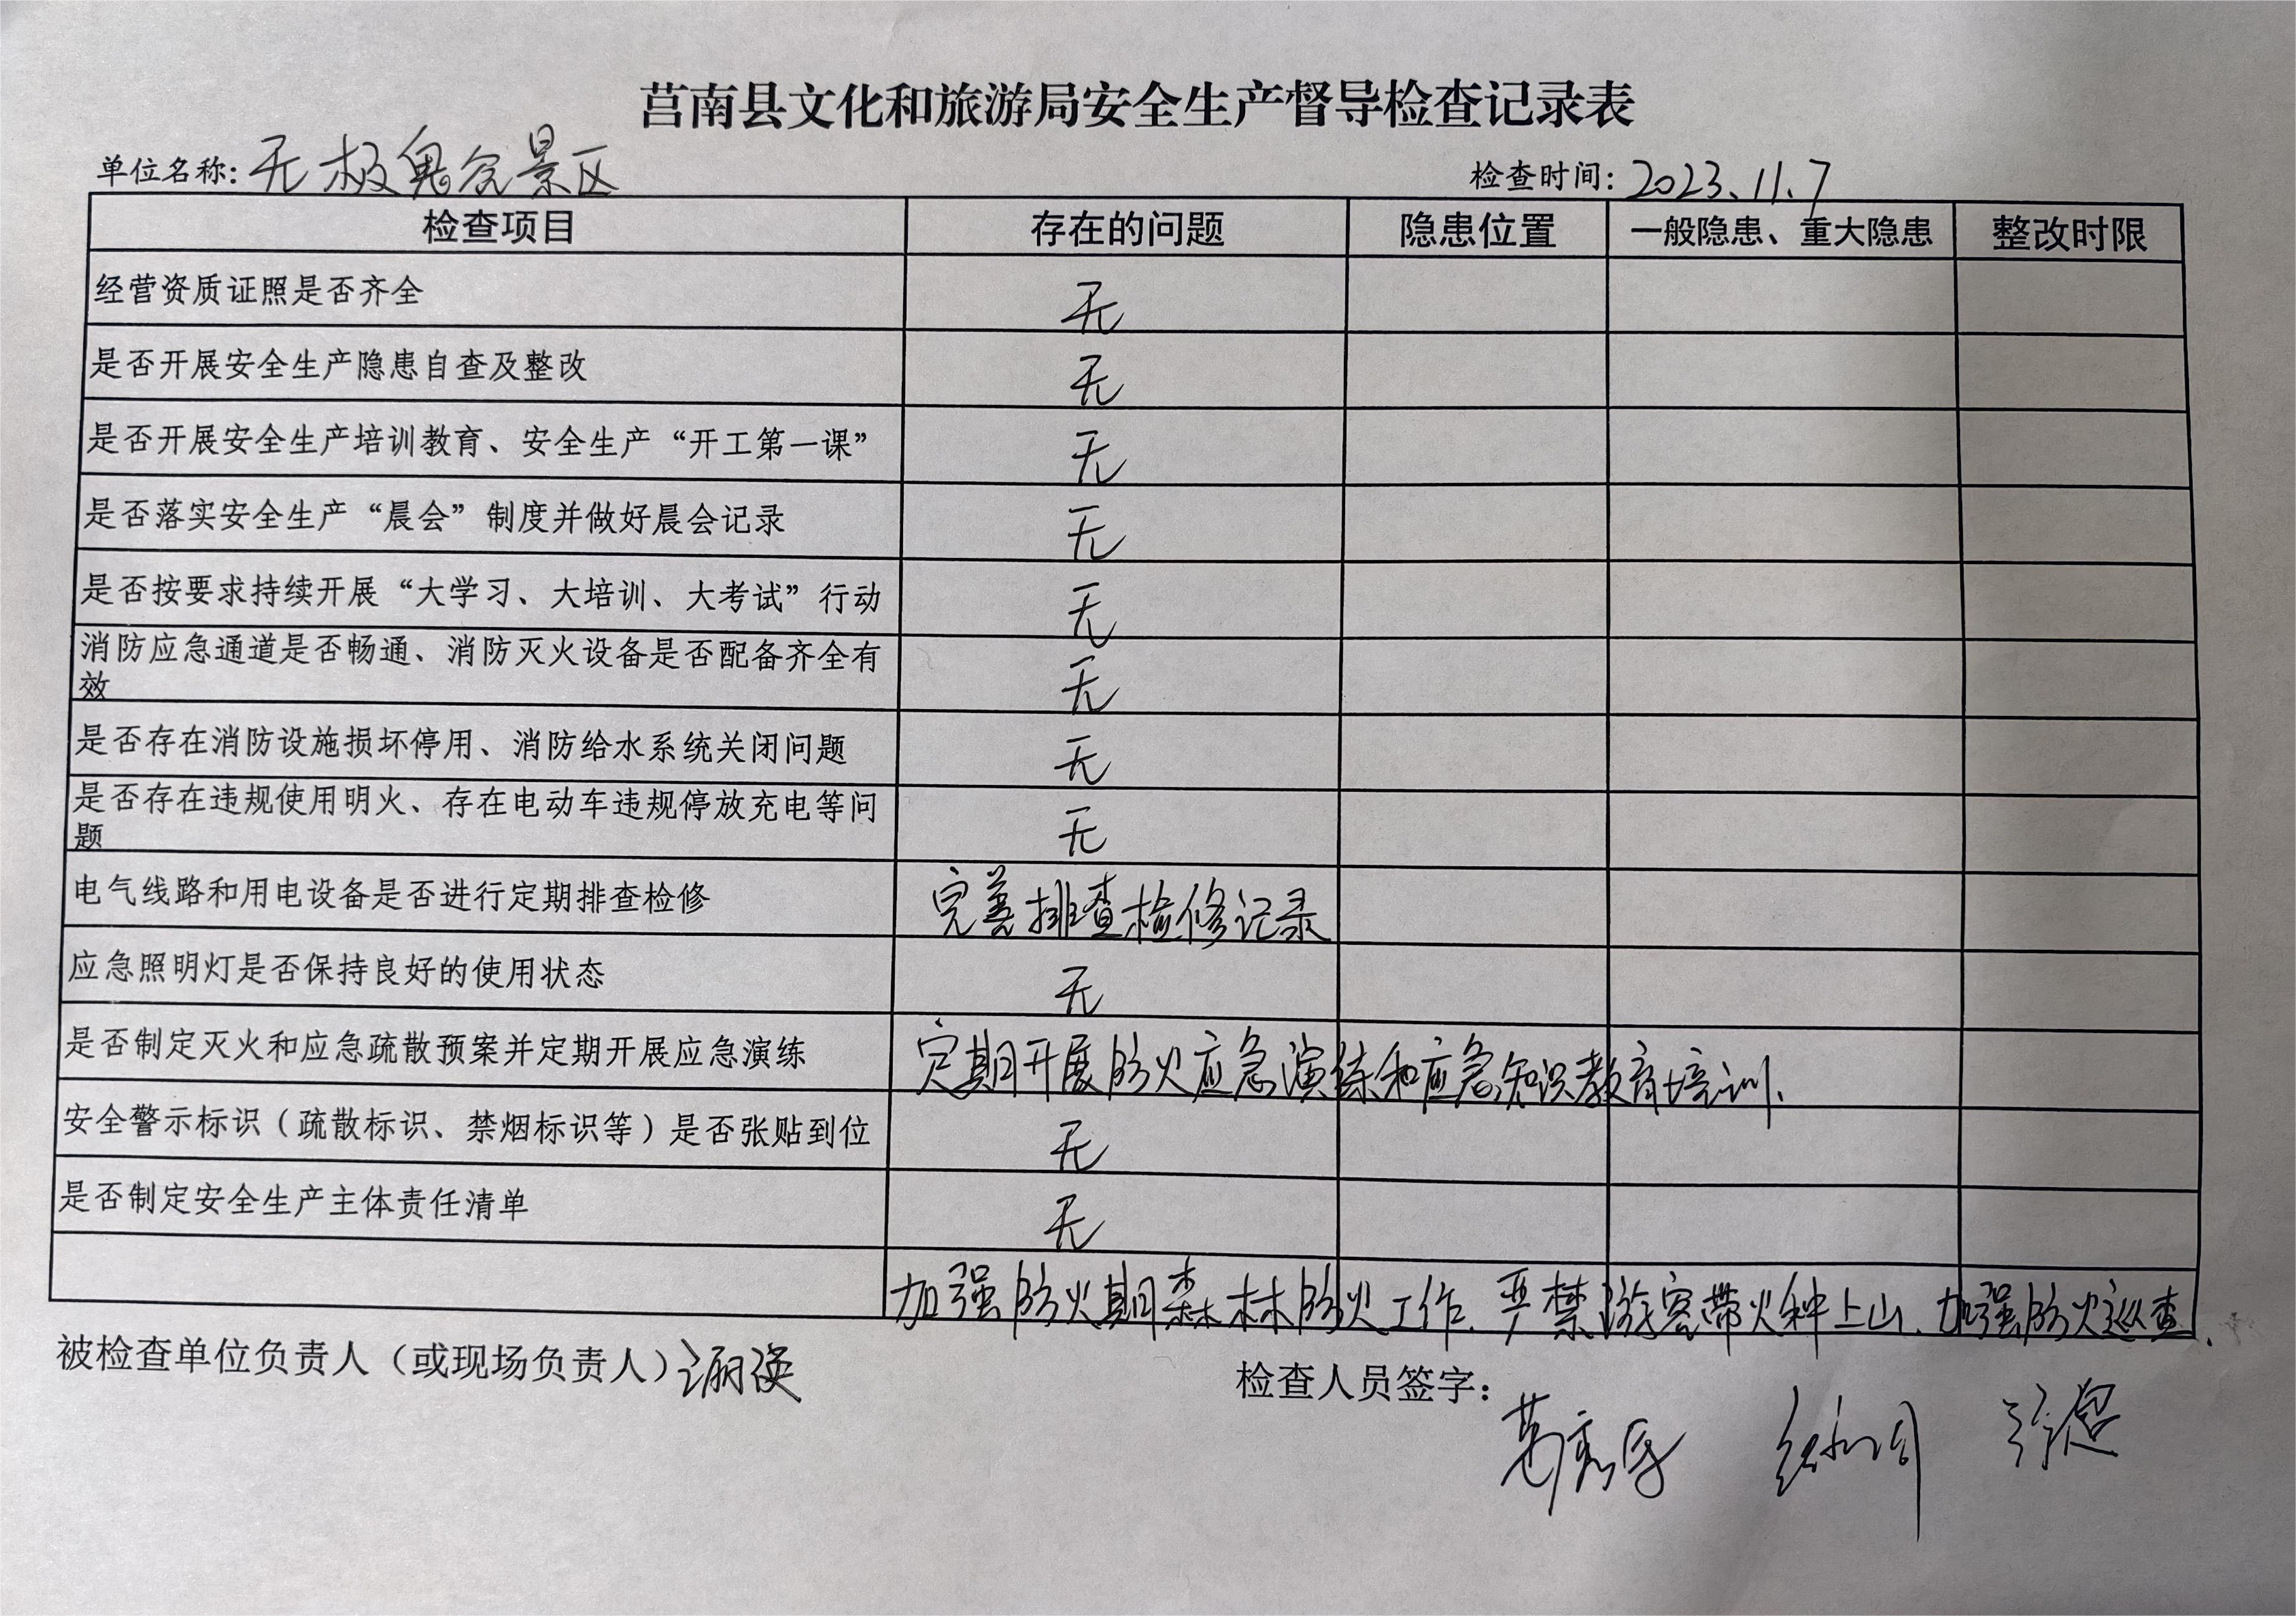 莒南县文化和旅游局安全生产督导检查记录表
单位名称:无极鬼谷景区 检查时间:2023.11.7
检查项目 存在的问题 隐患位置 一般隐患、重大隐患 整改时限
经营资质证照是否齐全 无
是否开展安全生产隐患自查及整改 无
是否开展安全生产培训教育、安全生产“开工第一课” 无
是否落实安全生产“晨会”制度并做好晨会记录 无
是否按要求持续开展“大学习、大培训、大考试”行动 无
消防应急通道是否畅通、消防灭火设备是否配备齐全有
效 无
是否存在消防设施损坏停用、消防给水系统关闭问题 无
是否存在违规使用明火、存在电动车违规停放充电等问
题 无
电气线路和用电设备是否进行定期排查检修 完善排查检修记录
应急照明灯是否保持良好的使用状态 无
是否制定灭火和应急疏散预案并定期开展应急演练 定期开展防火应急演练和应急知识教育培训.
安全警示标识(疏散标识、禁烟标识等)是否张贴到位 无
是否制定安全生产主体责任清单 无
加强防火期森林防火工作.严禁游客带火种上山.加强防火巡查.
被检查单位负责人(或现场负责人)
检查人员签字: